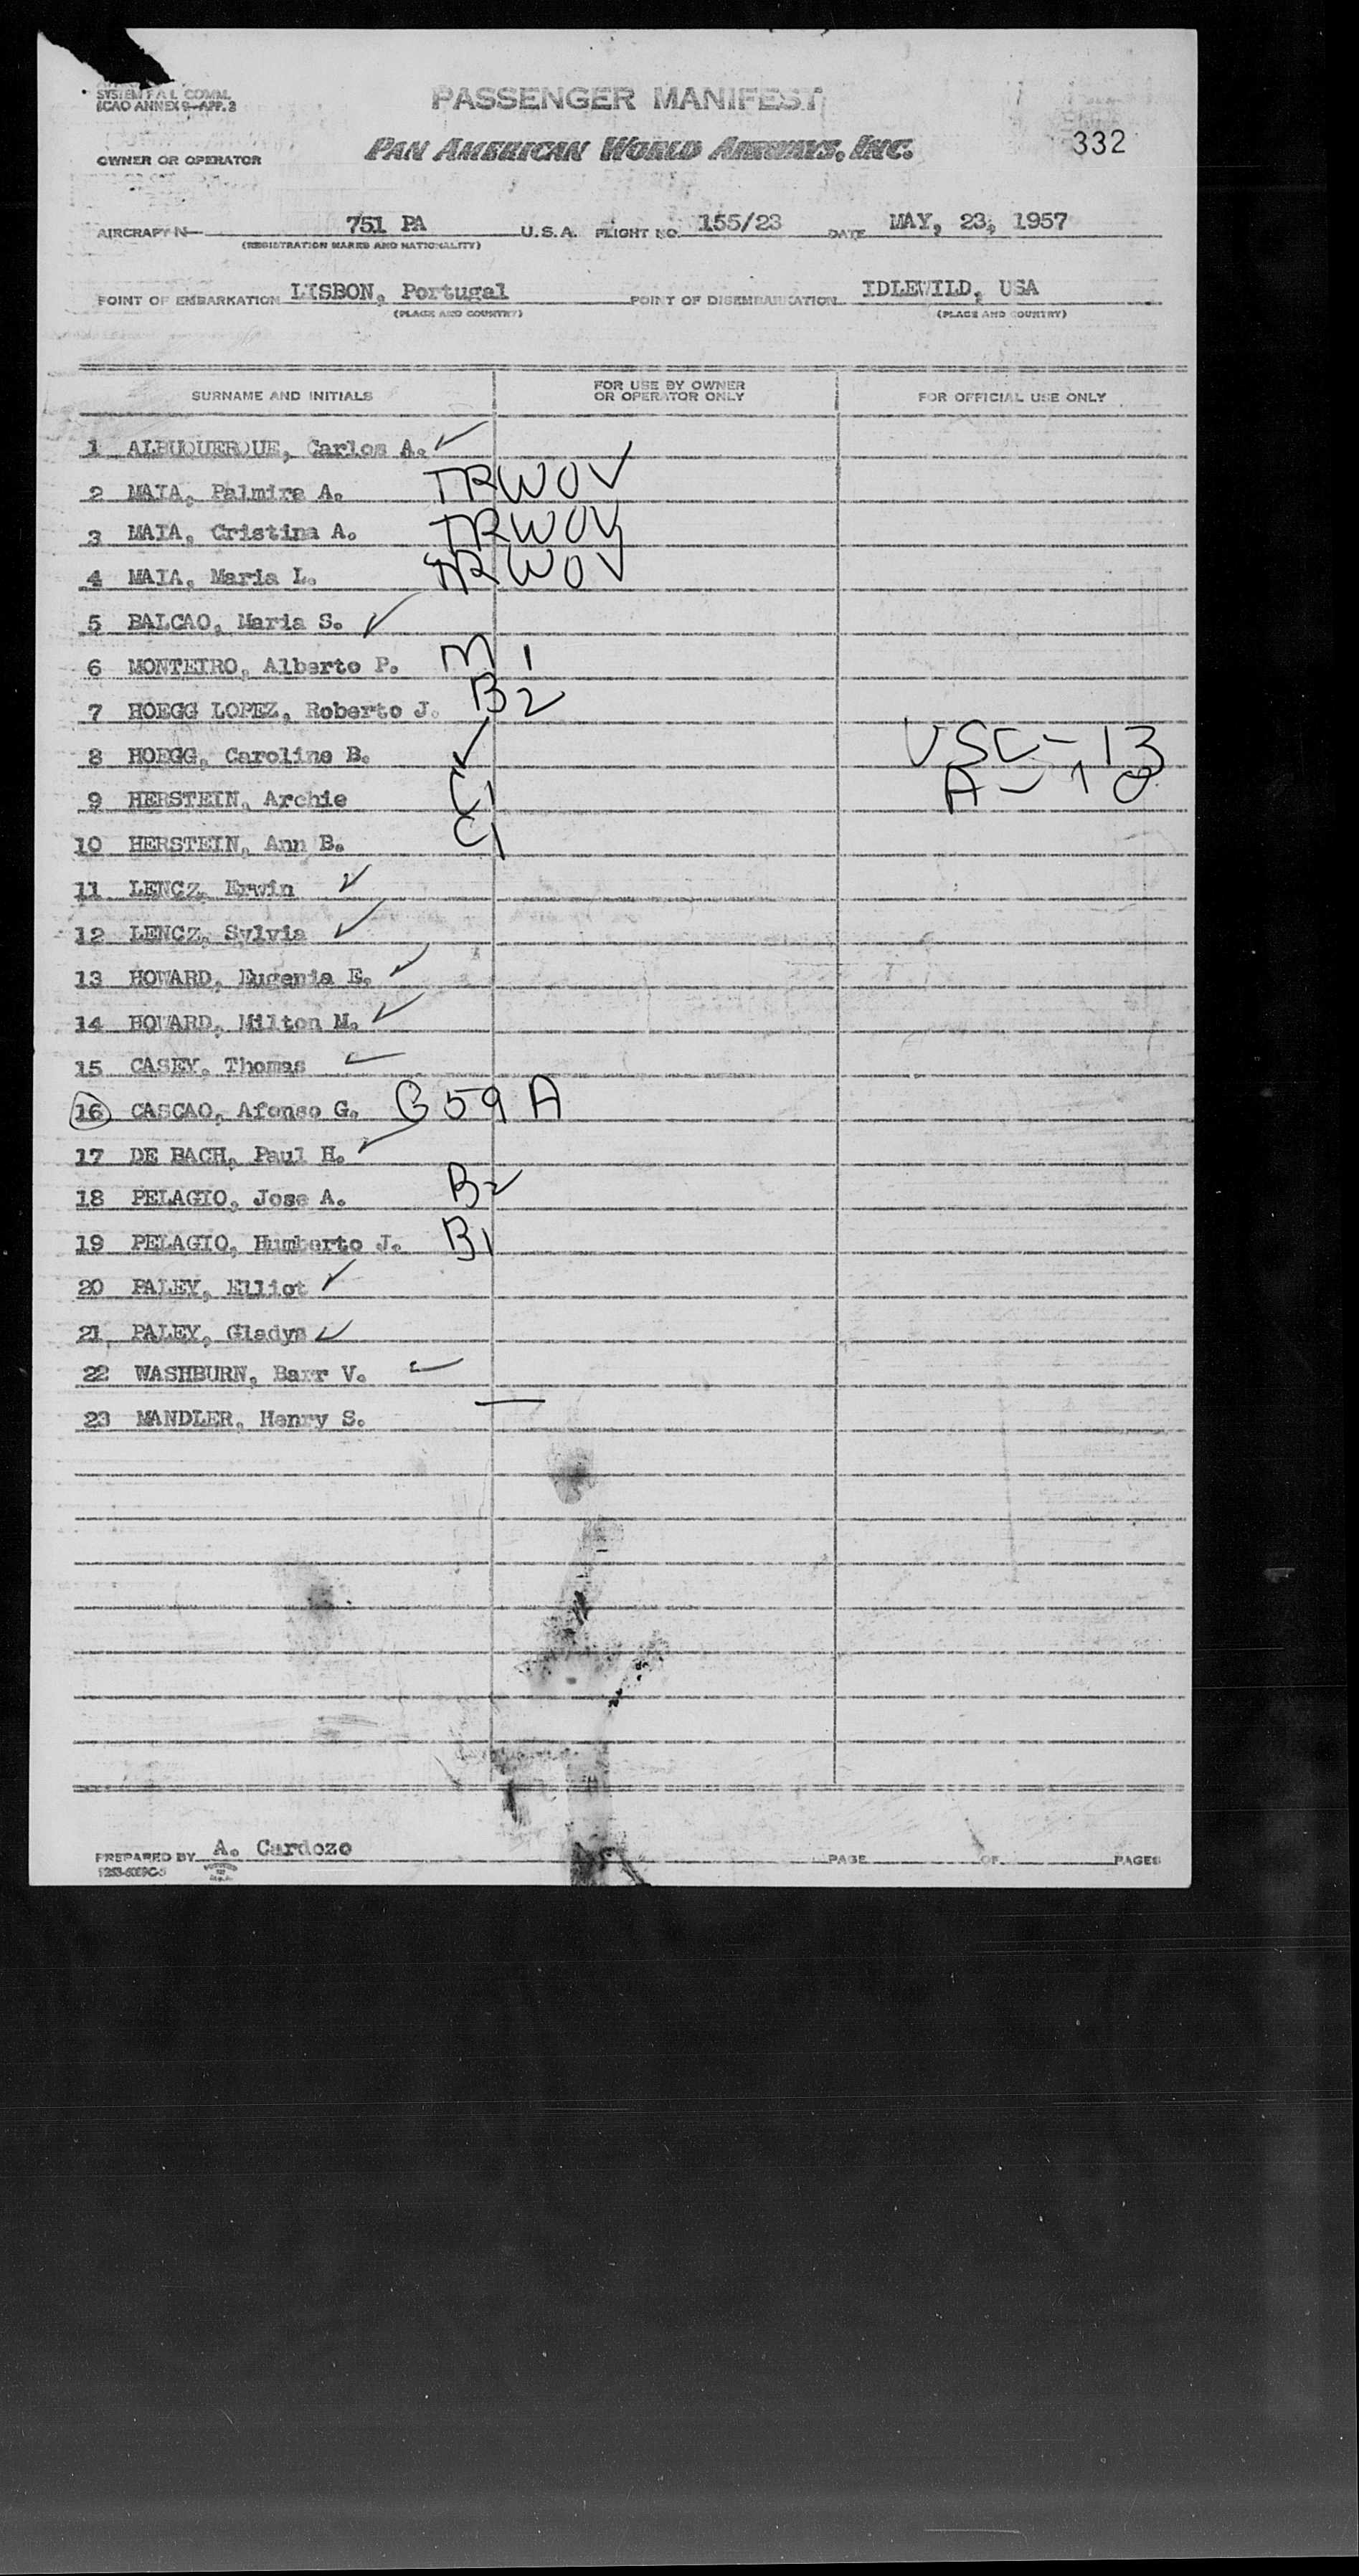 SYSTEM F A L COMM.
ICAO ANNEX 9—APP. 3
PASSENGER MANIFEST
PAN AMERICAN WORLD AIRWAYS, INC.
332
OWNER OR OPERATOR
AIRCRAFT N— 751 PA U.S.A. FLIGHT NO. 155/23 DATE MAY, 23, 1957
(REGISTRATION MARKS AND NATIONALITY)
POINT OF EMBARKATION LISBON, Portugal POINT OF DISEMBARKATION IDLEWILD, USA
(PLACE AND COUNTRY) (PLACE AND COUNTRY)
SURNAME AND INITIALS FOR USE BY OWNER OR OPERATOR ONLY FOR OFFICIAL USE ONLY
1 ALBUQUERQUE, Carlos A. ✓
2 MAIA, Palmira A. TRWOV
3 MAIA, Cristina A. TRWOV
4 MAIA, Maria L. TRWOV
5 BALCAO, Maria S. ✓
6 MONTEIRO, Alberto P. M 1
7 HOEGG LOPEZ, Roberto J. B2
8 HOEGG, Caroline B. ✓ USC-13
9 HERSTEIN, Archie C1 A-10
10 HERSTEIN, Ann B. C1
11 LENCZ, Erwin ✓
12 LENCZ, Sylvia ✓
13 HOWARD, Eugenia E. ✓
14 HOWARD, Milton M. ✓
15 CASEY, Thomas ✓
16 CASCAO, Afonso G. G 59 A
17 DE BACH, Paul H. ✓
18 PELAGIO, Jose A. B2
19 PELAGIO, Humberto J. B1
20 PALEY, Elliot ✓
21 PALEY, Gladys ✓
22 WASHBURN, Barr V. ✓
23 MANDLER, Henry S. —
PREPARED BY A. Cardozo PAGE OF PAGES